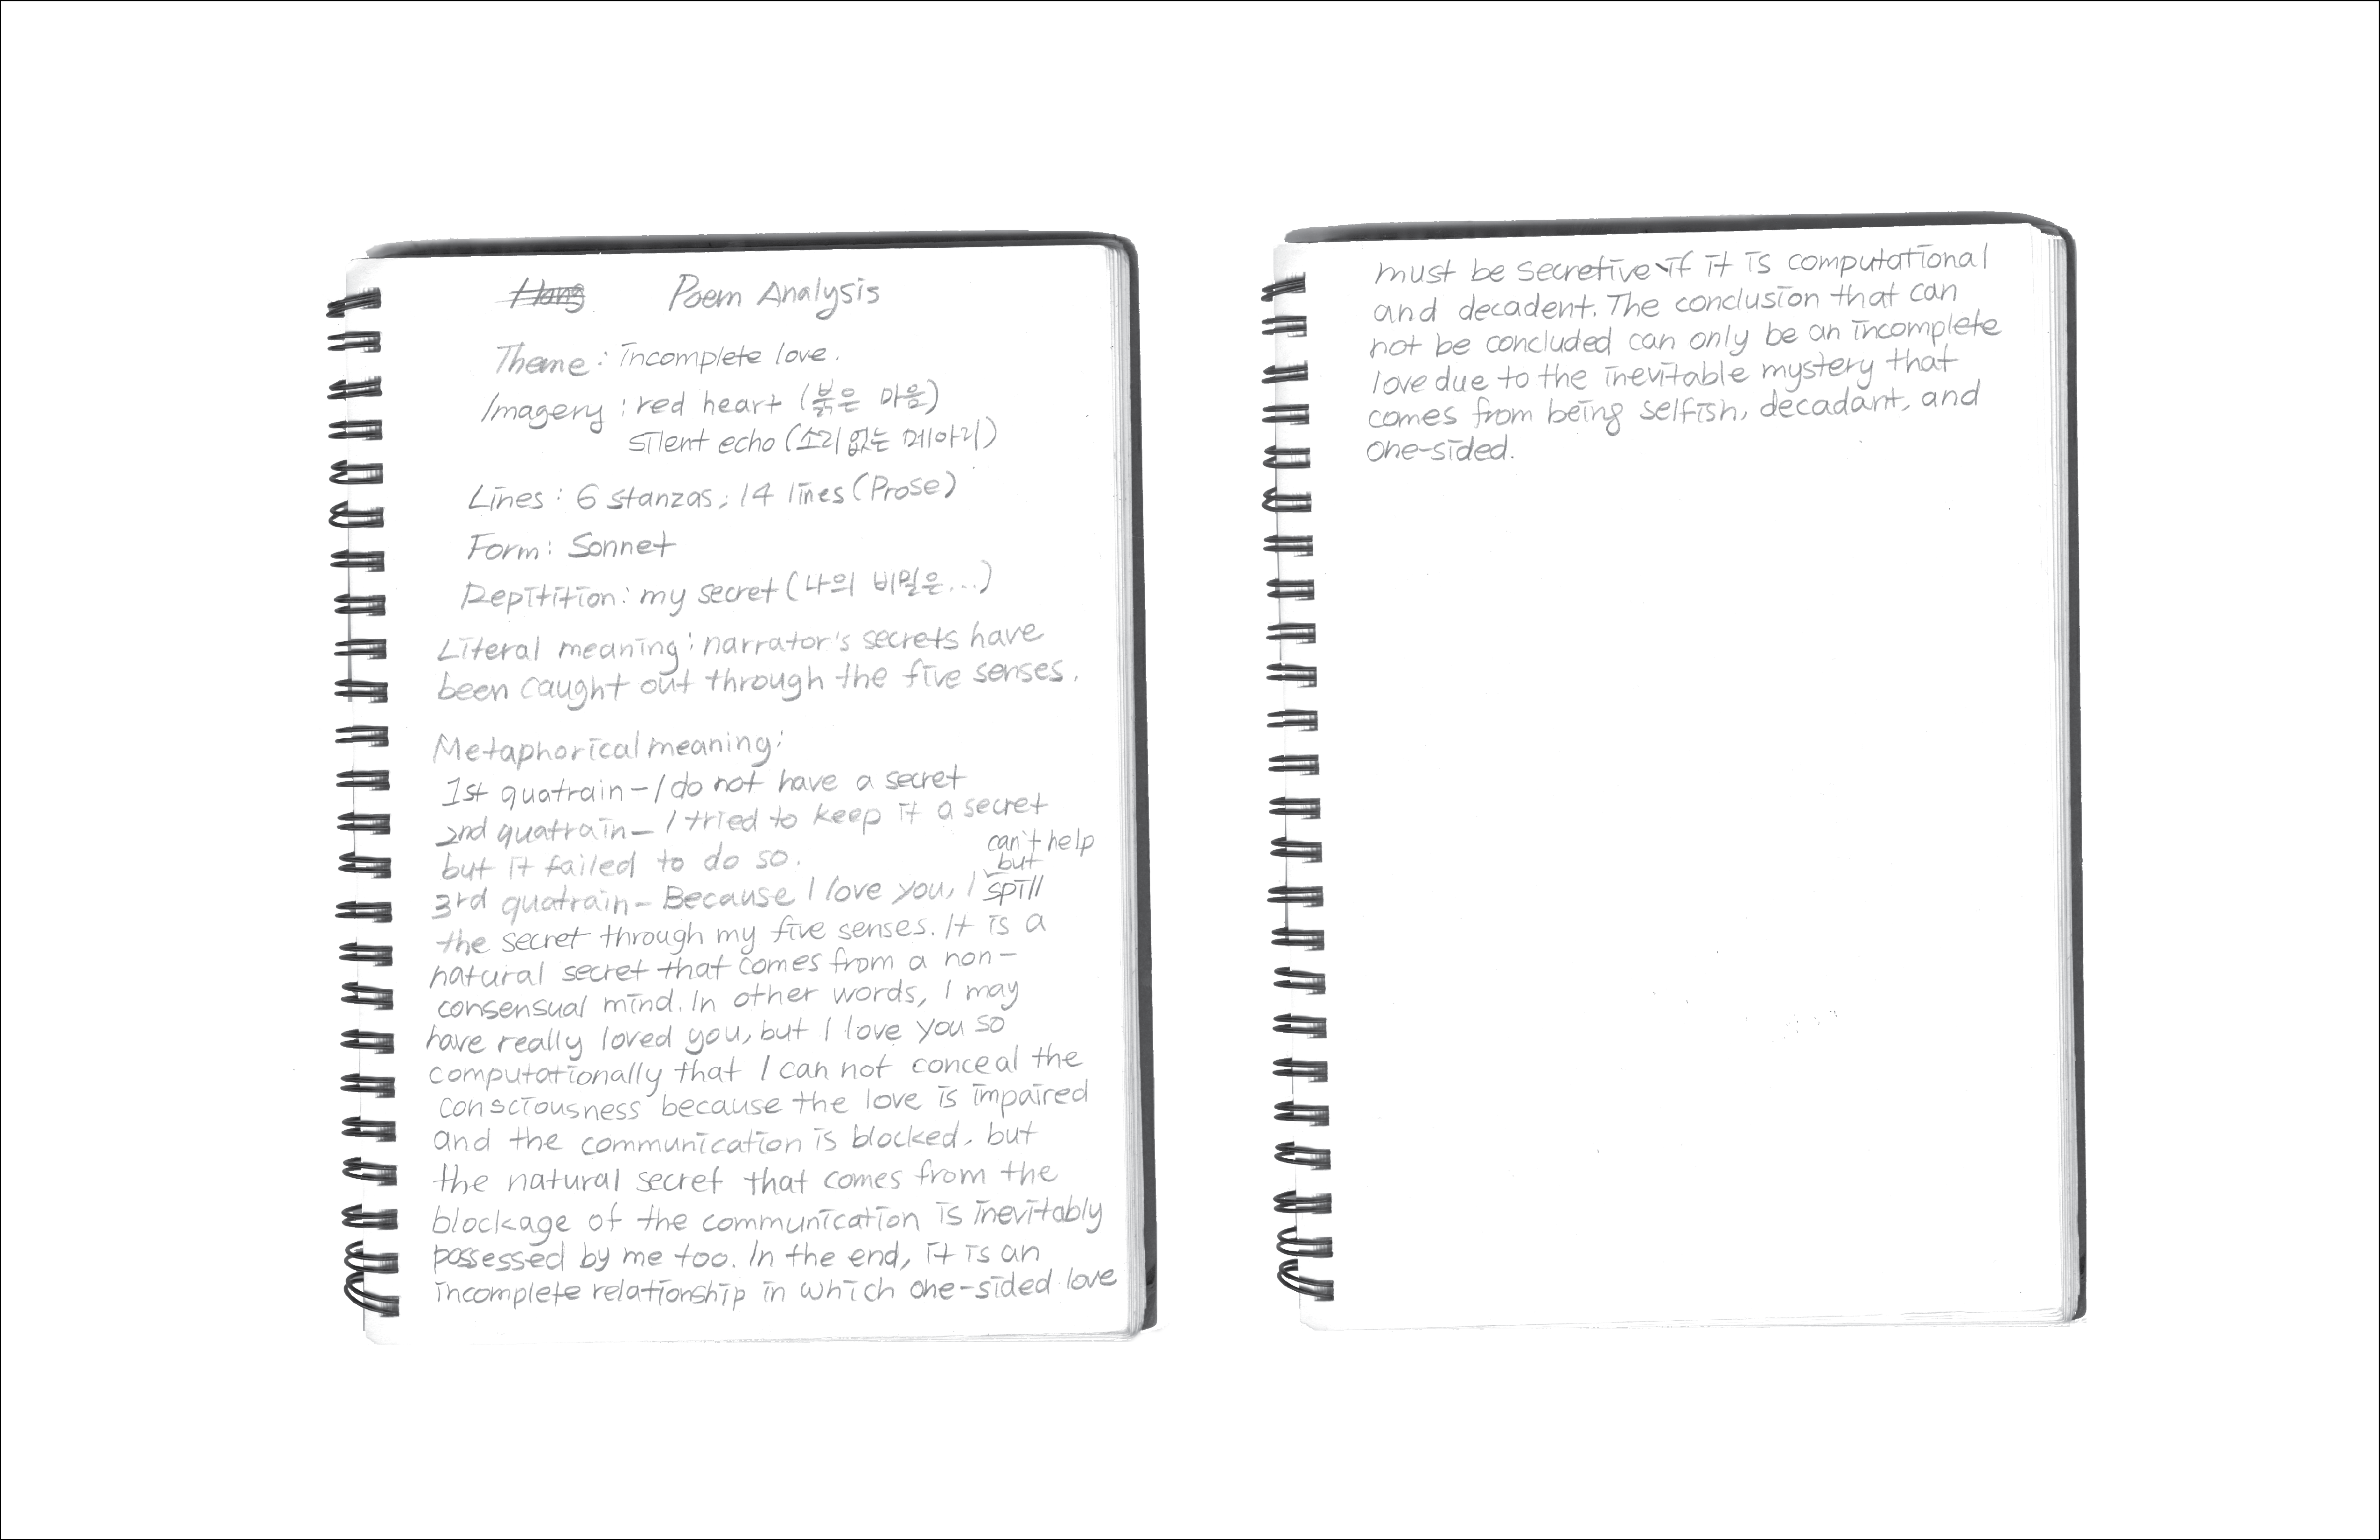 Poem Analysis
Theme: incomplete love.
Imagery: red heart (붉은 마음)
silent echo (소리 없는 메아리)
Lines: 6 stanzas, 14 lines (Prose)
Form: Sonnet
Repitition: my secret (나의 비밀은...)
Literal meaning: narrator's secrets have
been caught out through the five senses.
Metaphorical meaning:
1st quatrain - I do not have a secret
2nd quatrain - I tried to keep it a secret
but it failed to do so.
can't help
but
3rd quatrain - Because I love you, I spill
the secret through my five senses. It is a
natural secret that comes from a non-
consensual mind. In other words, I may
have really loved you, but I love you so
computationally that I can not conceal the
consciousness because the love is impaired
and the communication is blocked, but
the natural secret that comes from the
blockage of the communication is inevitably
possessed by me too. In the end, it is an
incomplete relationship in which one-sided love
must be secretive if it is computational
and decadent. The conclusion that can
not be concluded can only be an incomplete
love due to the inevitable mystery that
comes from being selfish, decadant, and
one-sided.